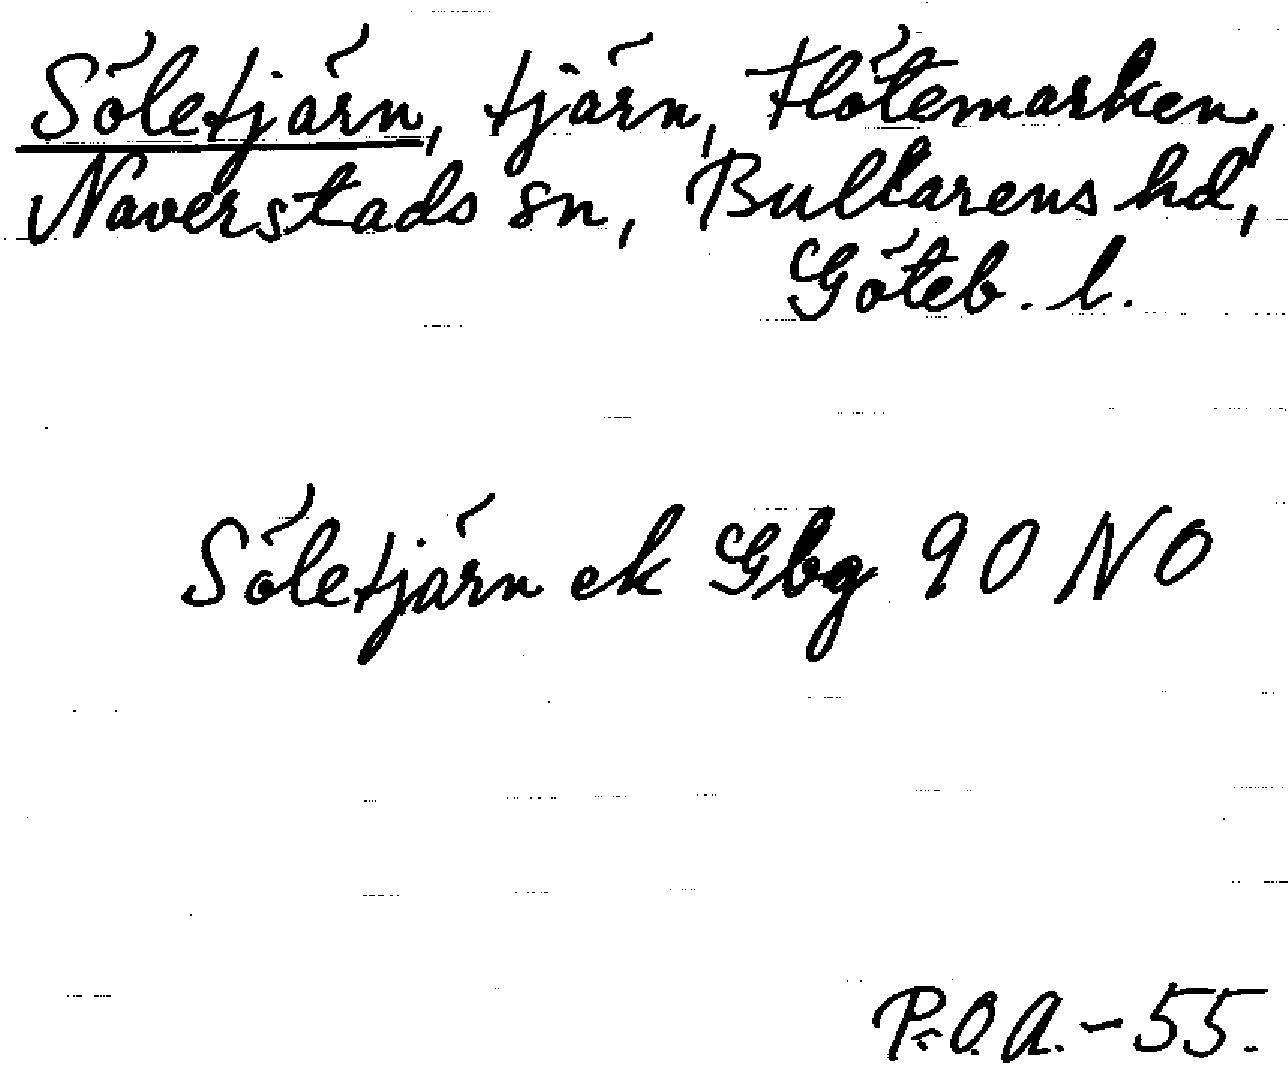 Söletjärn, tjärn, Flötemarken,
Naverstads sn, Bullarens hd,
Göteb. l.
Söletjärn ek Gbg 90 NO
P.O.A. - 55.